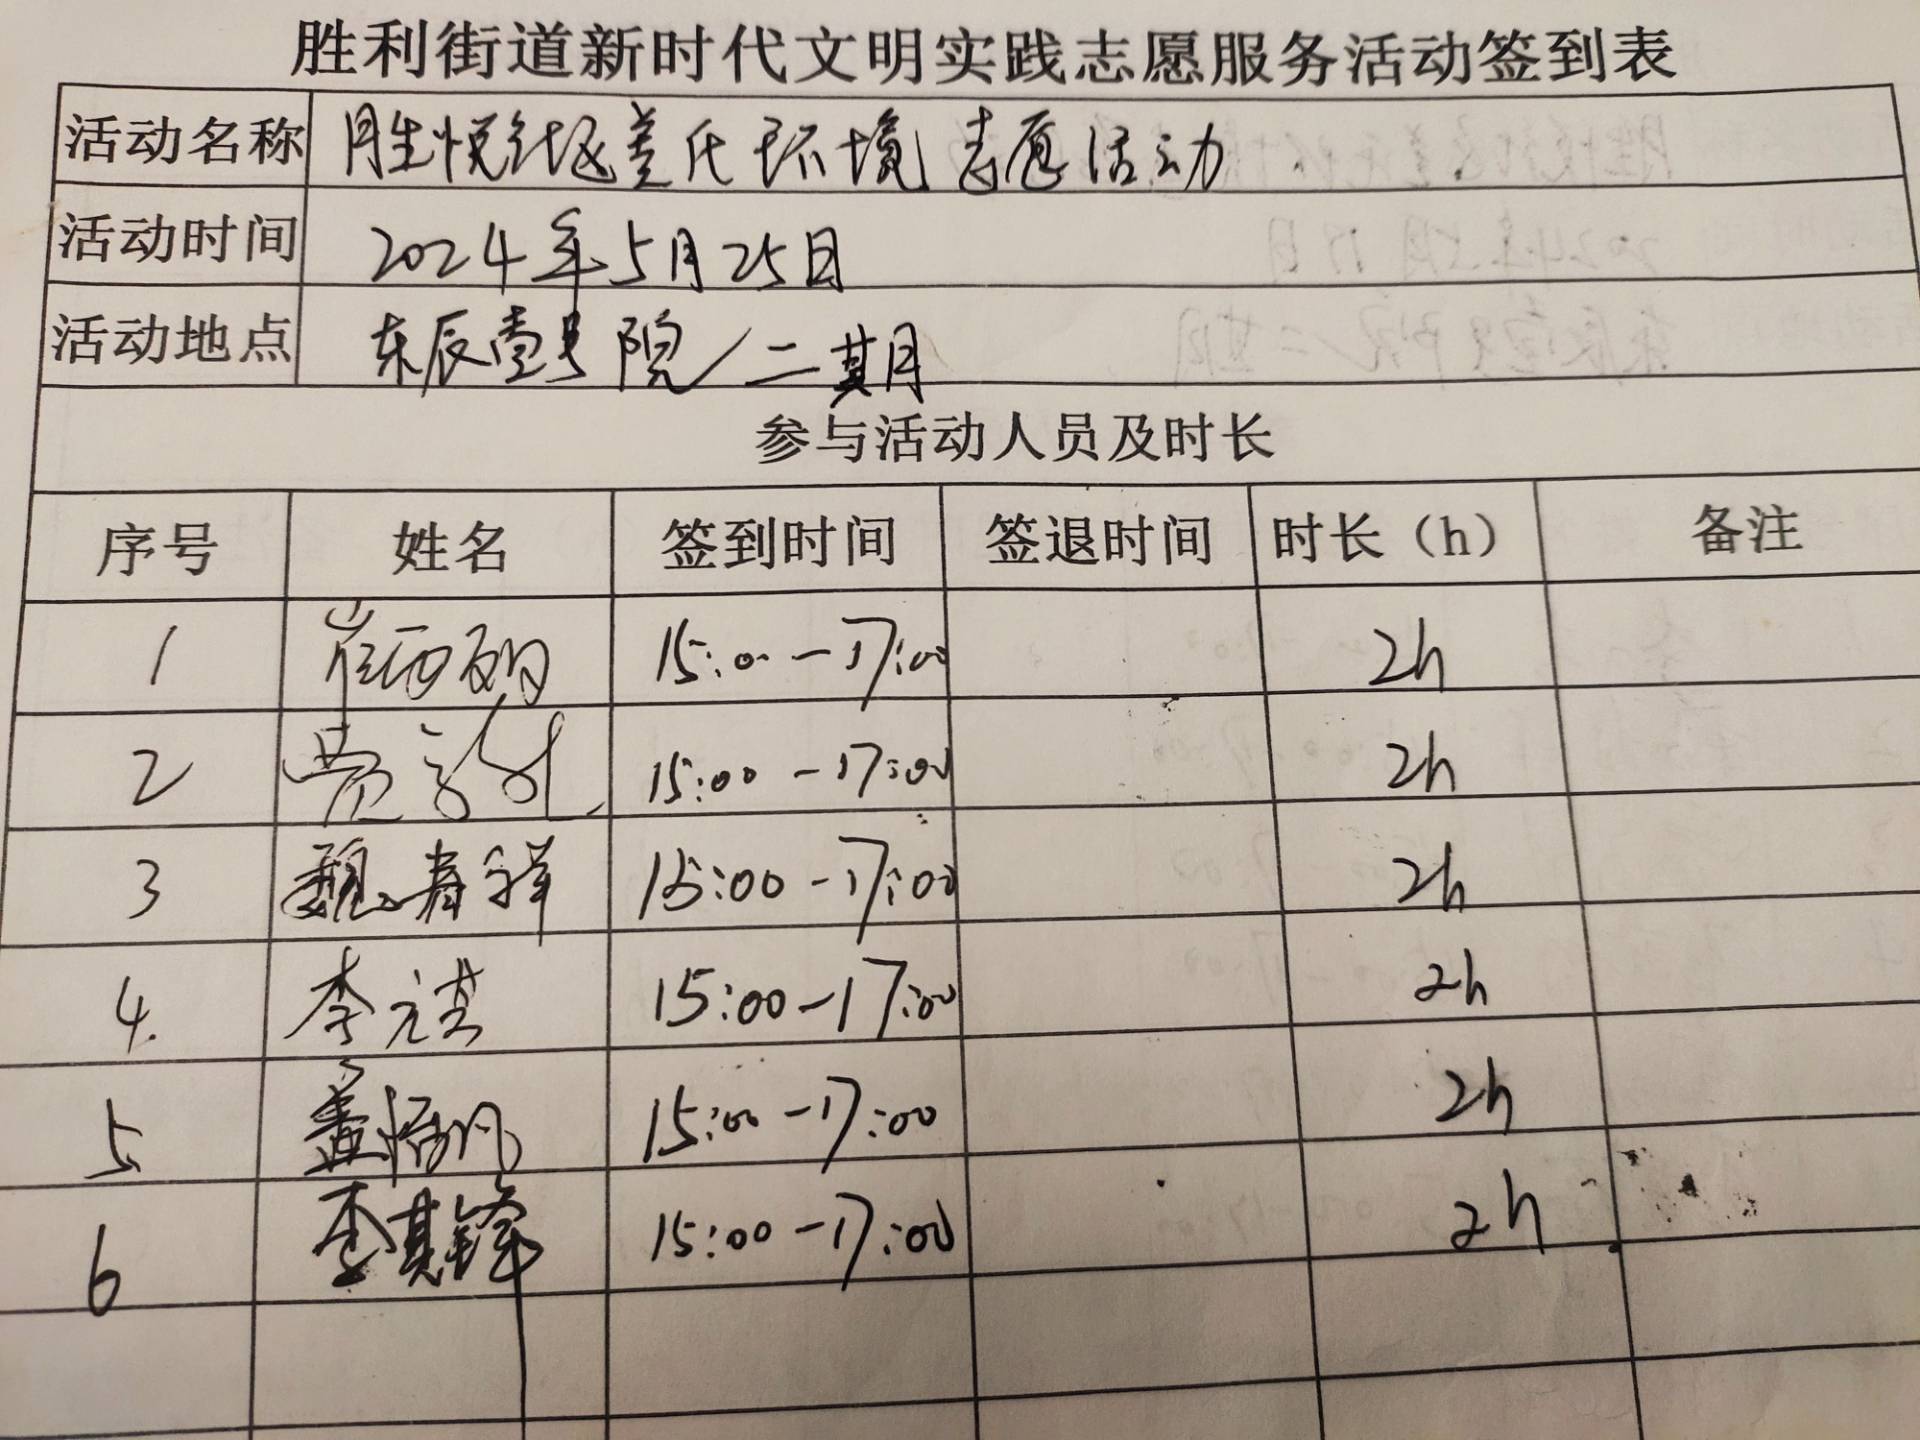 胜利街道新时代文明实践志愿服务活动签到表
活动名称 胜悦社区美化环境志愿活动
活动时间 2024年5月25日
活动地点 东辰壹号院/二期
参与活动人员及时长
序号 姓名 签到时间 签退时间 时长（h） 备注
1 15:00-17:00 2h
2 15:00-17:00 2h
3 魏春祥 15:00-17:00 2h
4. 李元 15:00-17:00 2h
5 董 15:00-17:00 2h
6 李其锋 15:00-17:00 2h